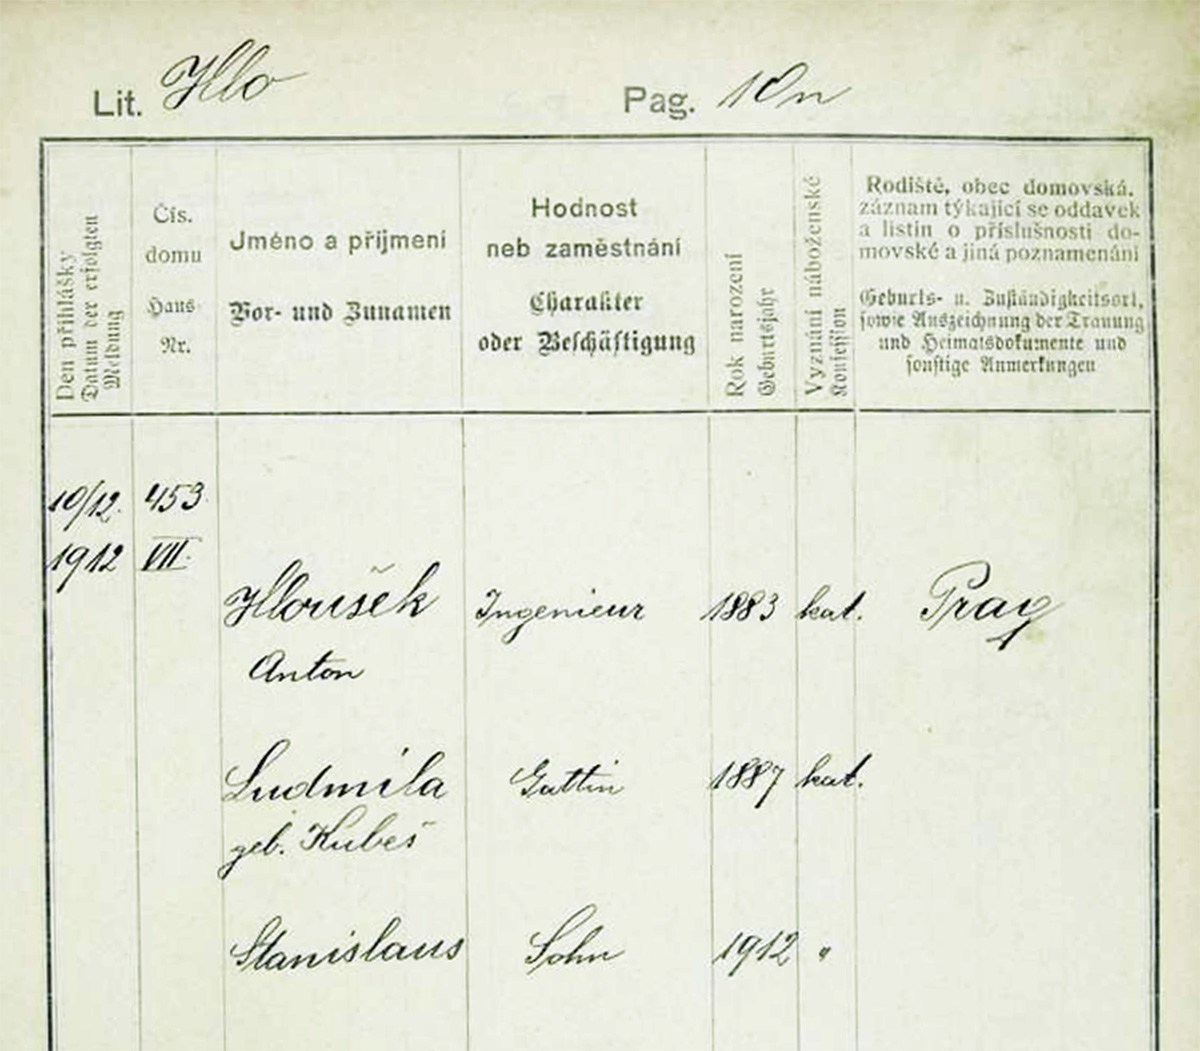 Lit. Hlo Pag. 10n
Den přihlášky
Datum der erfolgten
Meldung
Čís.
domu
Haus-
Nr.
Jméno a příjmení
Vor- und Zunamen
Hodnost
neb zaměstnání
Charakter
oder Beschäftigung
Rok narození
Geburtsjahr
Vyznání náboženské
Konfession
Rodiště, obec domovská,
záznam týkající se oddavek
a listin o příslušnosti do-
movské a jiná poznamenání
Geburts- u. Zuständigkeitsort,
sowie Auszeichnung der Trauung
und Heimatsdokumente und
sonstige Anmerkungen
10/12. 453
1912 VII.
Hloušek Ingenieur 1883 kat. Prag
Anton
Ludmila Gattin 1887 kat.
geb. Kubeš
Stanislaus Sohn 1912 "